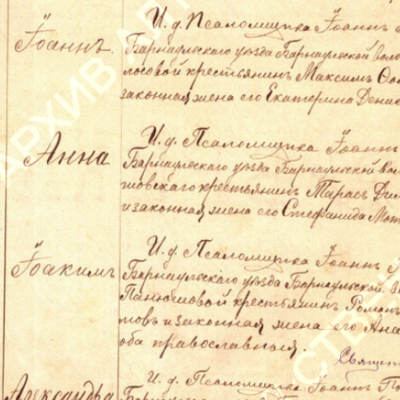 Іоаннъ.
И. д. Псаломщика Іоаннъ
Барнаульскаго уѣзда Барнаульской воло
лосовой крестьянинъ Максимъ
законная жена его Екатерина Денис
Анна
И. д. Псаломщика Іоаннъ
Барнаульскаго уѣзда Барнаульской вол
крестьянинъ Тарасъ
и законная жена его Стефанида
Іоакимъ
И. д. Псаломщика Іоаннъ
Барнаульскаго уѣзда Барнаульской в
Панюшовой крестьянинъ Роман
мовъ и законная жена его Ана
оба православныя.
Свящ
Александра
И. д. Псаломщика Іоаннъ